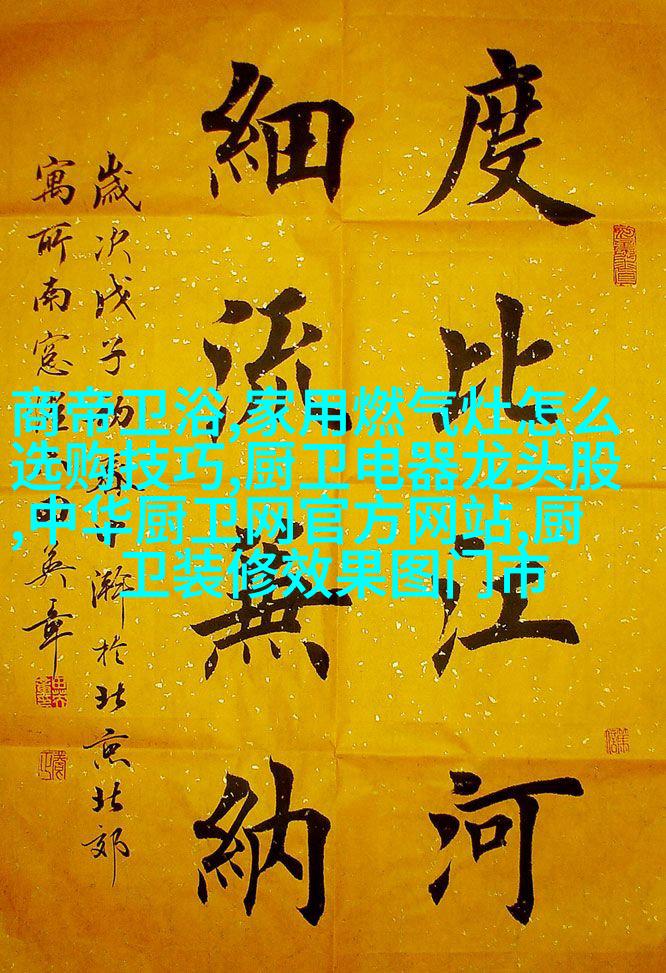 度比江河
細流無納
歲次戊子初春中澣於北京北郊
寓所南窗田英章
商帝卫浴,家用燃气灶怎么
选购技巧,厨卫电器龙头股
,中华厨卫网官方网站,厨
卫装修效果图门市